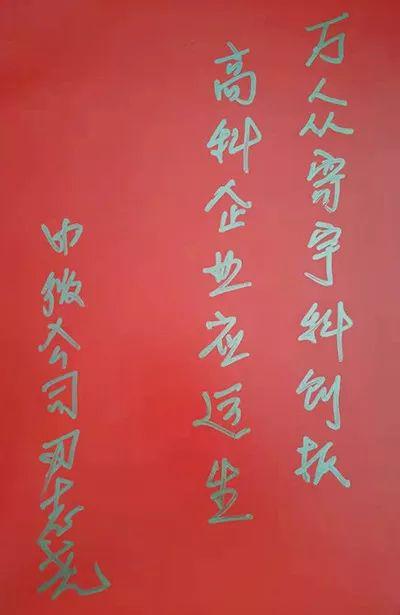 万人从寄宇科创板
高科企业应运生
中微公司尹志尧